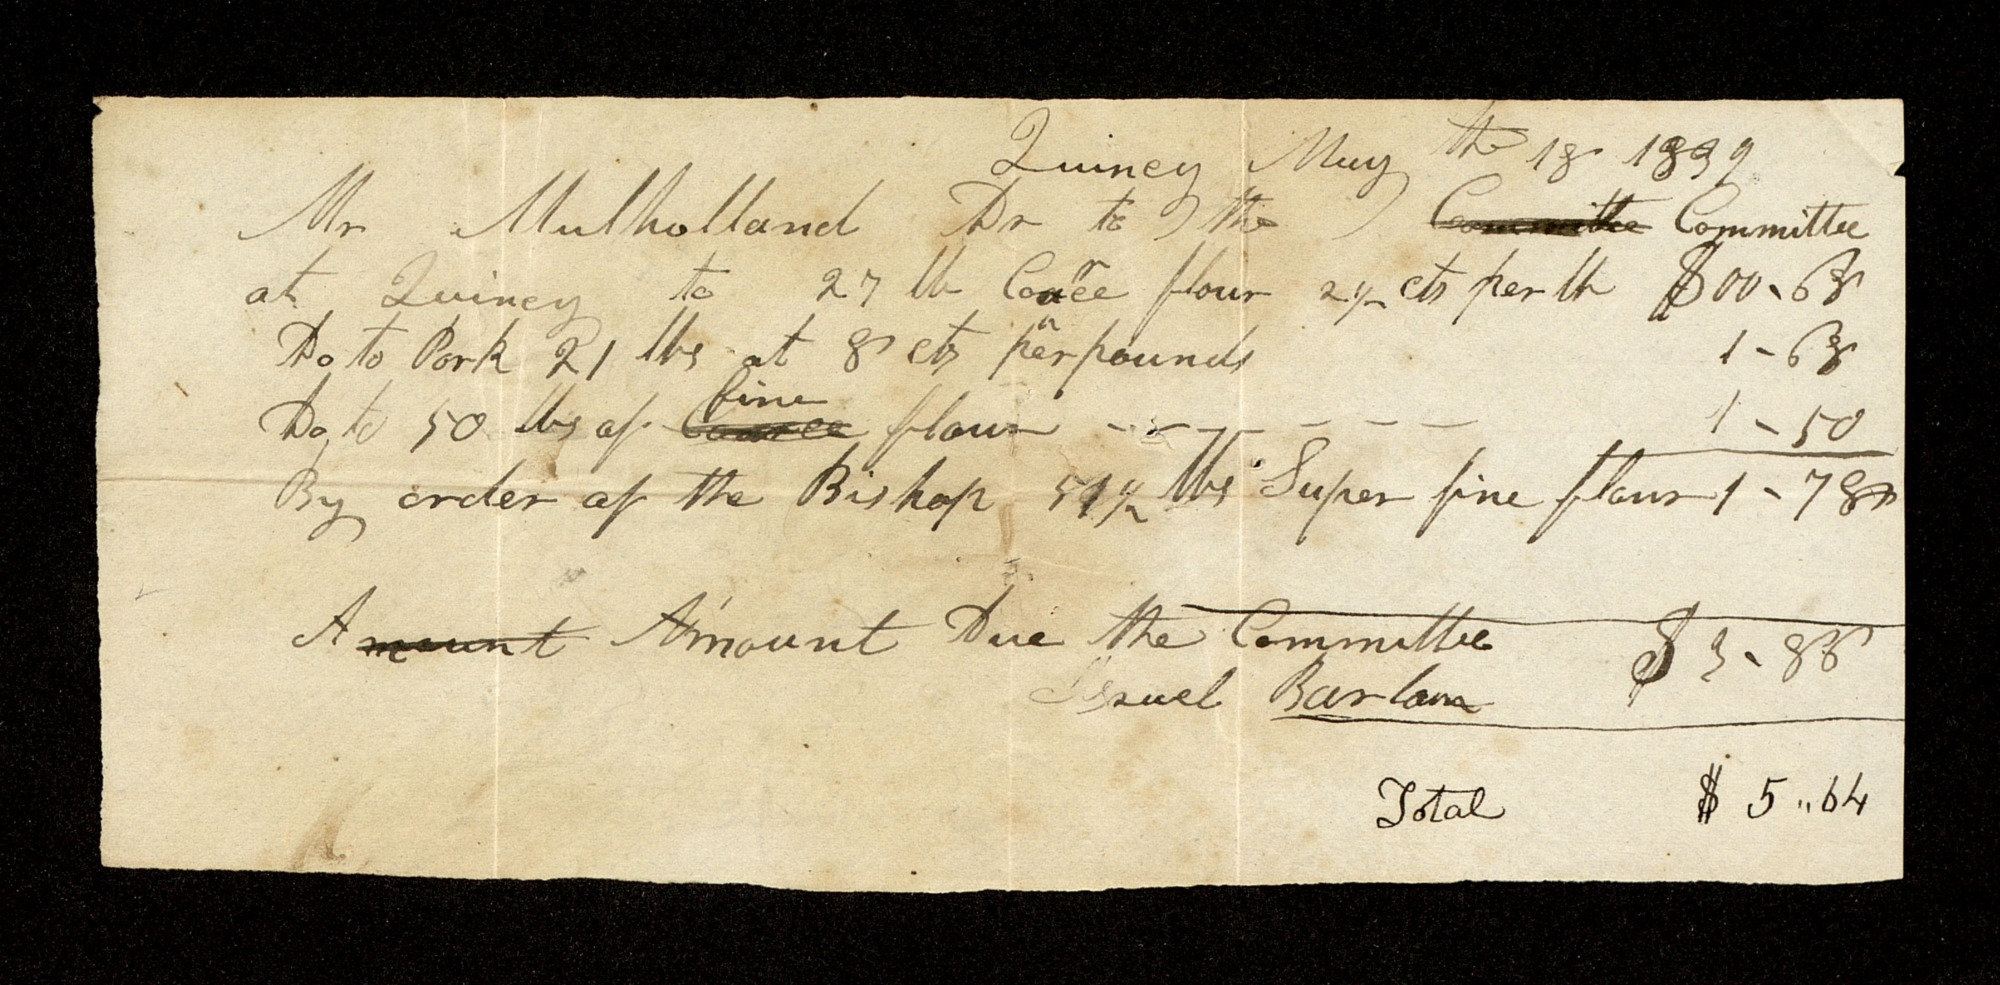 Quincy May the 18 1839
Mr Mulholland Dr to the Committee Committee
at Quincy to 27 lb Coarce flour 2 1/2 cts per lb $00-68
Do to Pork 21 lbs at 8 cts per pounds 1-68
Do to 50 lbs of Coarce fine flour - - - - - - - 1-50
By order of the Bishop 51 1/2 lbs Super fine flour 1-78
Amount Amount Due the Committee $3-86
Israel Barlow
Total $5..64